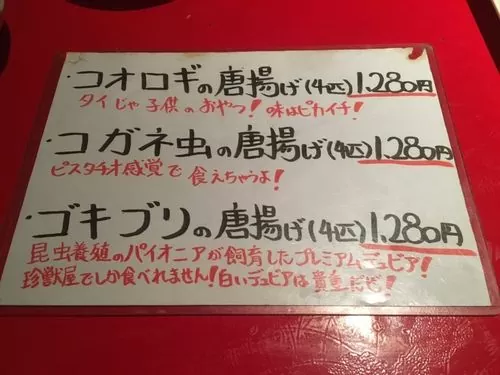 ・コオロギの唐揚げ(4匹)1,280円
タイじゃ子供のおやつ!味はピカイチ!
・コガネ虫の唐揚げ(4匹)1,280円
ピスタチオ感覚で食えちゃうよ!
・ゴキブリの唐揚げ(4匹)1,280円
昆虫養殖のパイオニアが飼育したプレミアムデュビア!
珍獣屋でしか食べれません!白いデュビアは貴重だぜ!